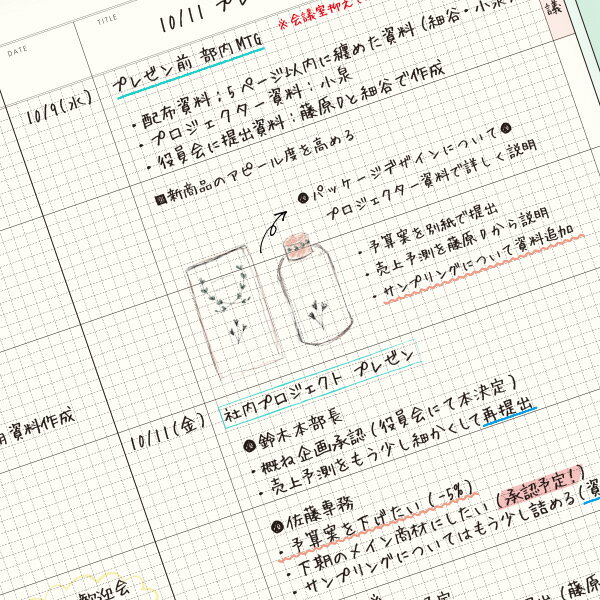 DATE
TITLE
10/11 プレゼ
※会議室抑え
議
10/9(水)
プレゼン前 部内MTG
・配布資料：5ページ以内に纏めた資料(細谷・小泉
・プロジェクター資料：小泉
・役員会に提出資料：藤原Dと細谷で作成
■新商品のアピール度を高める
パッケージデザインについて
プロジェクター資料で詳しく説明
・予算案を別紙で提出
・売上予測を藤原Dから説明
・サンプリングについて資料追加
資料作成
10/11(金)
社内プロジェクト プレゼン
鈴木本部長
・概ね企画承認(役員会にて本決定)
・売上予測をもう少し細かくして再提出
佐藤専務
・予算案を下げたい(-5%)
・下期のメイン商材にしたい(承認予定!)
・サンプリングについてはもう少し詰める(資
歓迎会
予定
出(藤原